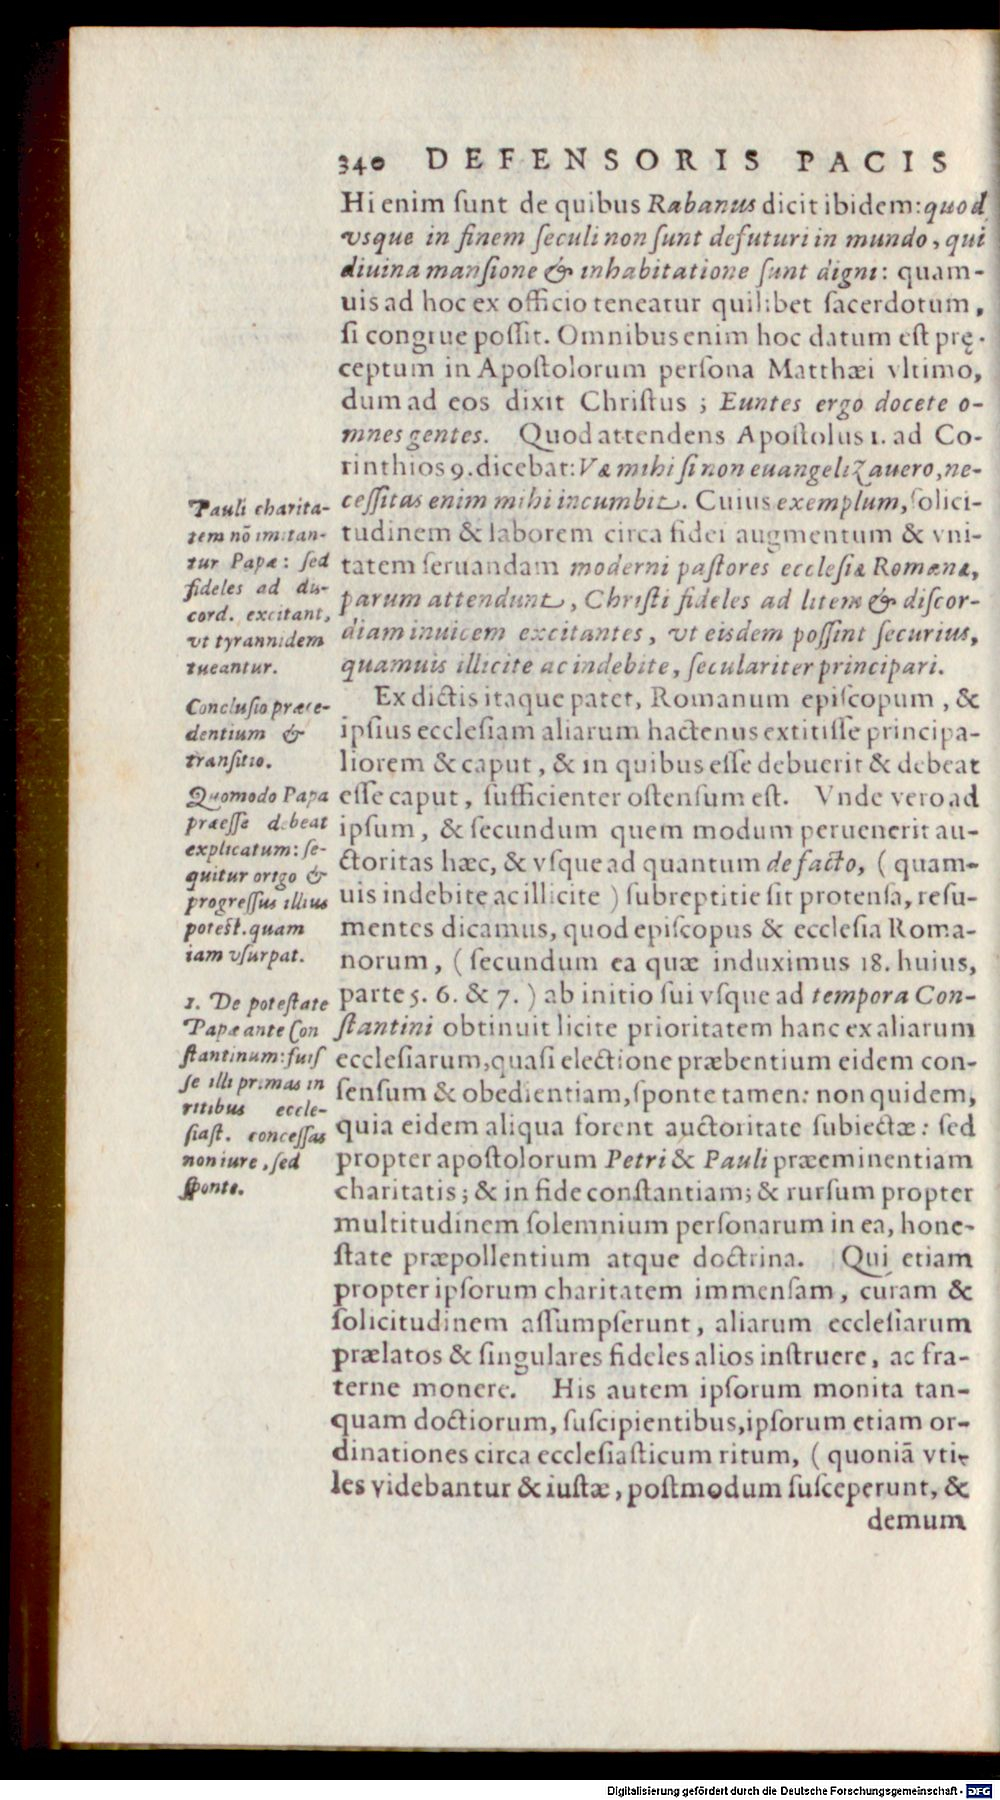 340 DEFENSORIS PACIS
Hi enim ſunt de quibus Rabanus dicit ibidem: quod
vsque in finem ſeculi non ſunt defuturi in mundo, qui
diuina manſione & inhabitatione ſunt digni: quam-
uis ad hoc ex officio teneatur quilibet ſacerdotum,
ſi congrue poſſit. Omnibus enim hoc datum eſt prę-
ceptum in Apoſtolorum perſona Matthæi vltimo,
dum ad eos dixit Chriſtus ; Euntes ergo docete o-
mnes gentes. Quod attendens Apoſtolus 1. ad Co-
rinthios 9. dicebat: Væ mihi ſi non euangelizauero, ne-
ceſſitas enim mihi incumbit. Cuius exemplum, ſolici-
tudinem & laborem circa fidei augmentum & vni-
tatem ſeruandam moderni paſtores eccleſiæ Romanæ,
parum attendunt, Chriſti fideles ad litem & diſcor-
diam inuicem excitantes, vt eisdem poſſint ſecurius,
quamuis illicite ac indebite, ſeculariter principari.
Ex dictis itaque patet, Romanum epiſcopum, &
ipſius eccleſiam aliarum hactenus extitiſſe principa-
liorem & caput, & in quibus eſſe debuerit & debeat
eſſe caput, ſufficienter oſtenſum eſt. Vnde vero ad
ipſum, & ſecundum quem modum peruenerit au-
ctoritas hæc, & vſque ad quantum de facto, ( quam-
uis indebite ac illicite ) ſubreptitie ſit protenſa, reſu-
mentes dicamus, quod epiſcopus & eccleſia Roma-
norum, ( ſecundum ea quæ induximus 18. huius,
parte 5. 6. & 7. ) ab initio ſui vſque ad tempora Con-
ſtantini obtinuit licite prioritatem hanc ex aliarum
eccleſiarum, quaſi electione præbentium eidem con-
ſenſum & obedientiam, ſponte tamen: non quidem,
quia eidem aliqua forent auctoritate ſubiectæ: ſed
propter apoſtolorum Petri & Pauli præeminentiam
charitatis; & in fide conſtantiam; & rurſum propter
multitudinem ſolemnium perſonarum in ea, hone-
ſtate præpollentium atque doctrina. Qui etiam
propter ipſorum charitatem immenſam, curam &
ſolicitudinem aſſumpſerunt, aliarum eccleſiarum
prælatos & ſingulares fideles alios inſtruere, ac fra-
terne monere. His autem ipſorum monita tan-
quam doctiorum, ſuſcipientibus, ipſorum etiam or-
dinationes circa eccleſiaſticum ritum, ( quoniā vti-
les videbantur & iuſtæ, poſtmodum ſuſceperunt, &
demum
Pauli charita-
tem nō imitan-
tur Papæ: ſed
fideles ad diſ-
cord. excitant,
vt tyrannidem
tueantur.
Concluſio præce-
dentium &
tranſitio.
Quomodo Papa
præeſſe debeat
explicatum: ſe-
quitur origo &
progreſſus illius
poteſt. quam
iam vſurpat.
1. De poteſtate
Papæ ante Con
ſtantinum: fuiſ
ſe illi primas in
ritibus eccle-
ſiaſt. conceſſas
non iure, ſed
ſponte.
Digitalisierung gefördert durch die Deutsche Forschungsgemeinschaft - DFG